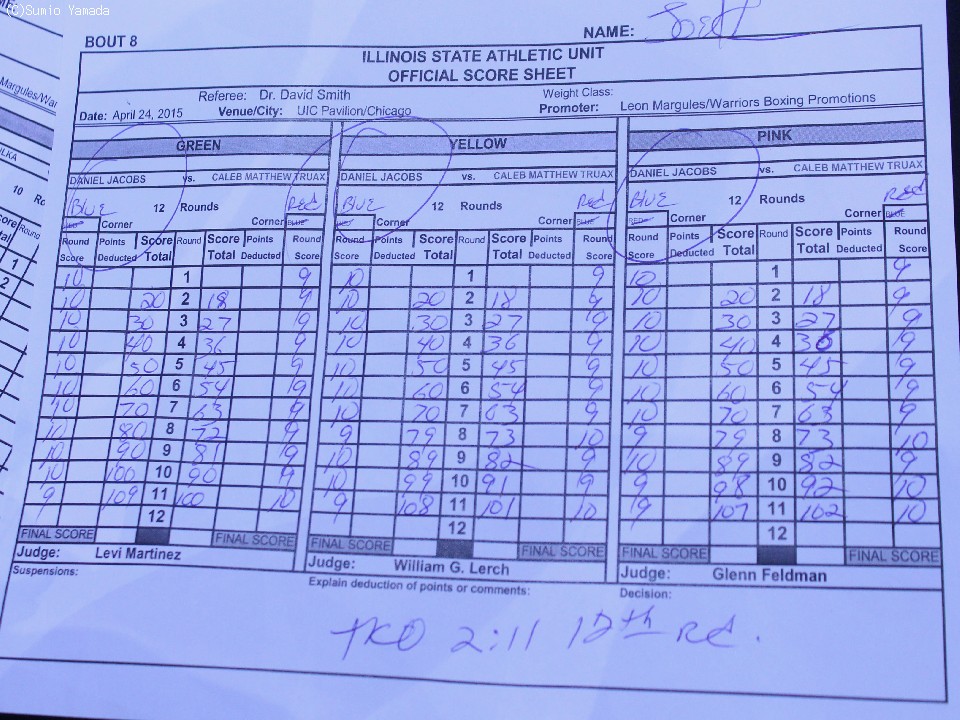 (C)Sumio Yamada
BOUT 8 NAME:
ILLINOIS STATE ATHLETIC UNIT
OFFICIAL SCORE SHEET
Referee: Dr. David Smith Weight Class:
Date: April 24, 2015 Venue/City: UIC Pavilion/Chicago Promoter: Leon Margules/Warriors Boxing Promotions
GREEN YELLOW PINK
DANIEL JACOBS vs. CALEB MATTHEW TRUAX DANIEL JACOBS vs. CALEB MATTHEW TRUAX DANIEL JACOBS vs. CALEB MATTHEW TRUAX
Blue 12 Rounds Red Blue 12 Rounds Red Blue 12 Rounds Red
Corner Corner BLUE Corner Corner BLUE RED Corner Corner BLUE
Round Points Score Round Score Points Round Round Points Score Round Score Points Round Round Points Score Round Score Points Round
Score Deducted Total Total Deducted Score Score Deducted Total Total Deducted Score Score Deducted Total Total Deducted Score
10 1 9 10 1 9 10 1 9
10 20 2 18 9 10 20 2 18 9 10 20 2 18 9
10 30 3 27 9 10 30 3 27 9 10 30 3 27 9
10 40 4 36 9 10 40 4 36 9 10 40 4 36 9
10 50 5 45 9 10 50 5 45 9 10 50 5 45 9
10 60 6 54 9 10 60 6 54 9 10 60 6 54 9
10 70 7 63 9 10 70 7 63 9 10 70 7 63 9
10 80 8 72 9 9 79 8 73 10 9 79 8 73 10
10 90 9 81 9 10 89 9 82 9 10 89 9 82 9
10 100 10 90 9 10 99 10 91 9 9 98 10 92 10
9 109 11 100 10 9 108 11 101 10 9 107 11 102 10
12 12 12
FINAL SCORE FINAL SCORE FINAL SCORE FINAL SCORE FINAL SCORE FINAL SCORE
Judge: Levi Martinez Judge: William G. Lerch Judge: Glenn Feldman
Suspensions: Explain deduction of points or comments: Decision:
TKO 2:11 12th Rd.